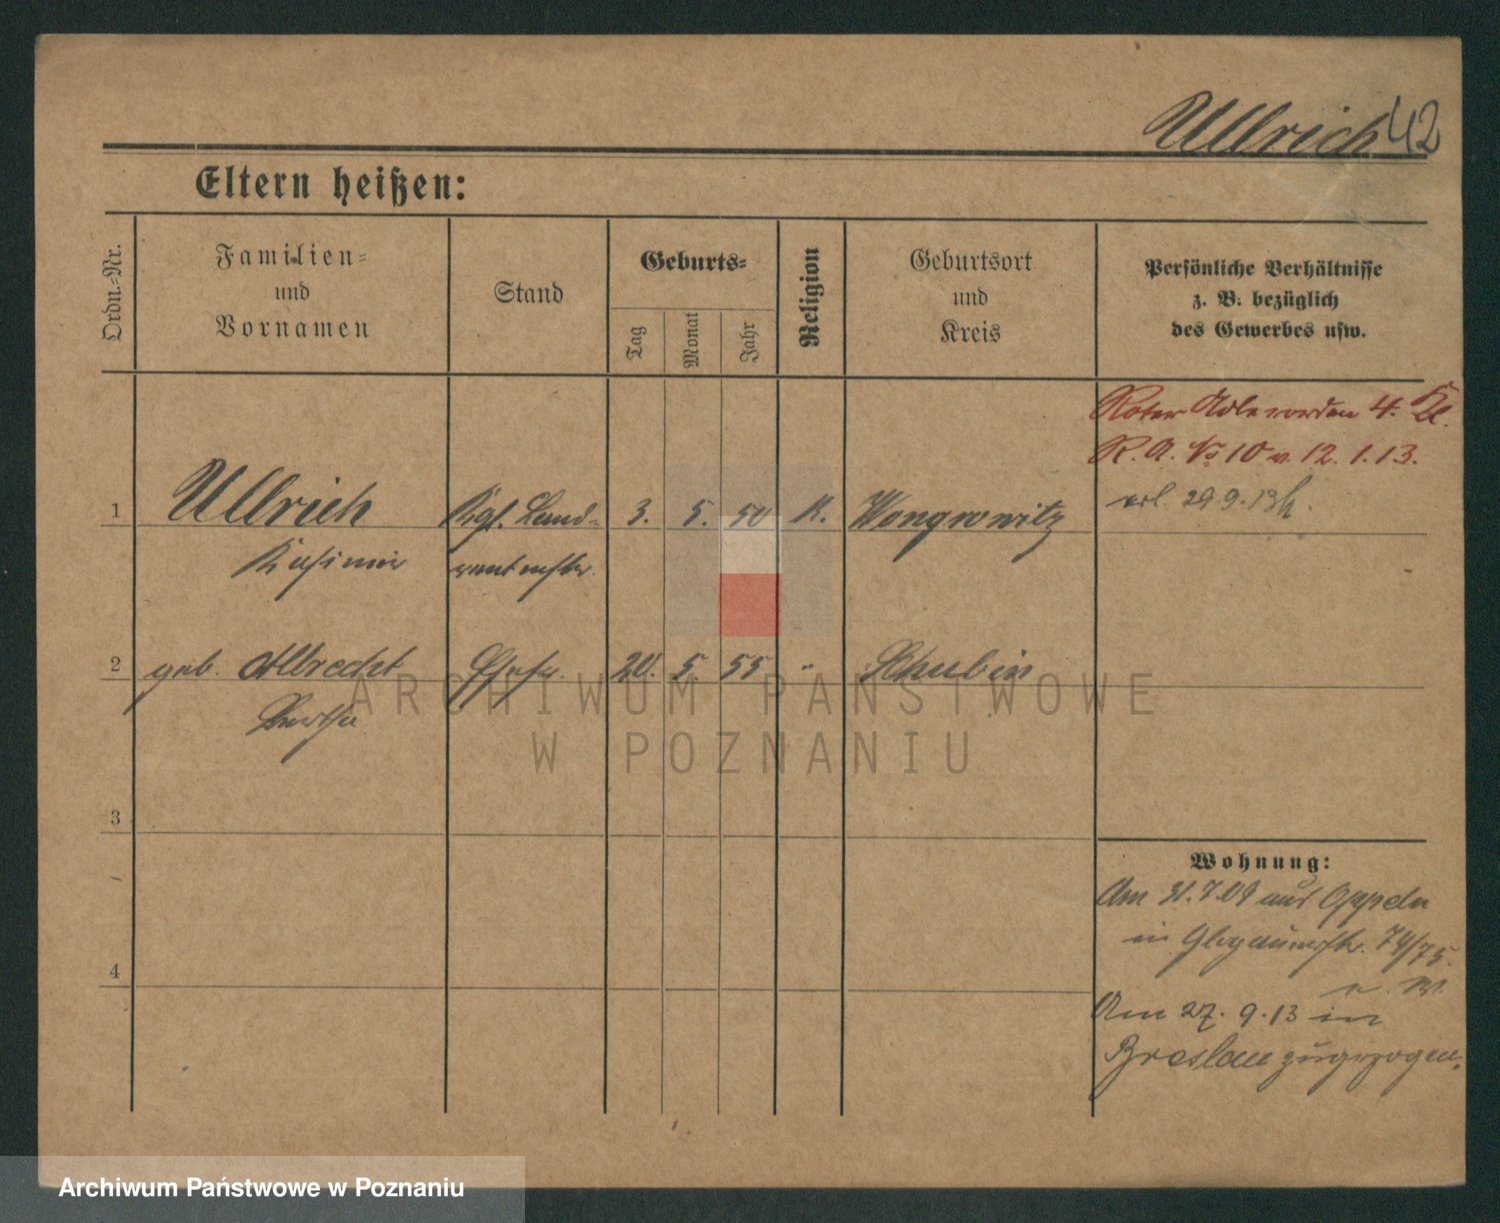 Ullrich 42
Eltern heißen:
Ordn.-Nr.
Familien-
und
Vornamen
Stand
Geburts-
Tag
Monat
Jahr
Religion
Geburtsort
und
Kreis
Persönliche Verhältnisse
z. B. bezüglich
des Gewerbes usw.
Roter Adlerorden 4. Kl.
R. A. No 10 v. 12. 1. 13.
29.9.13
1 Ullrich Kgl. Land- 3. 5. 50 K. Wongrowitz
Kasimir rentmstr.
2 geb. Albrecht Ehefr. 20. 5. 55 " Schubin
Bertha
3
4
Wohnung:
Am 31.7.09 aus Oppeln
in Glogauerstr. 74/75.
Am 27. 9. 13 in
Breslau zugezogen.
ARCHIWUM PAŃSTWOWE
W POZNANIU
Archiwum Państwowe w Poznaniu